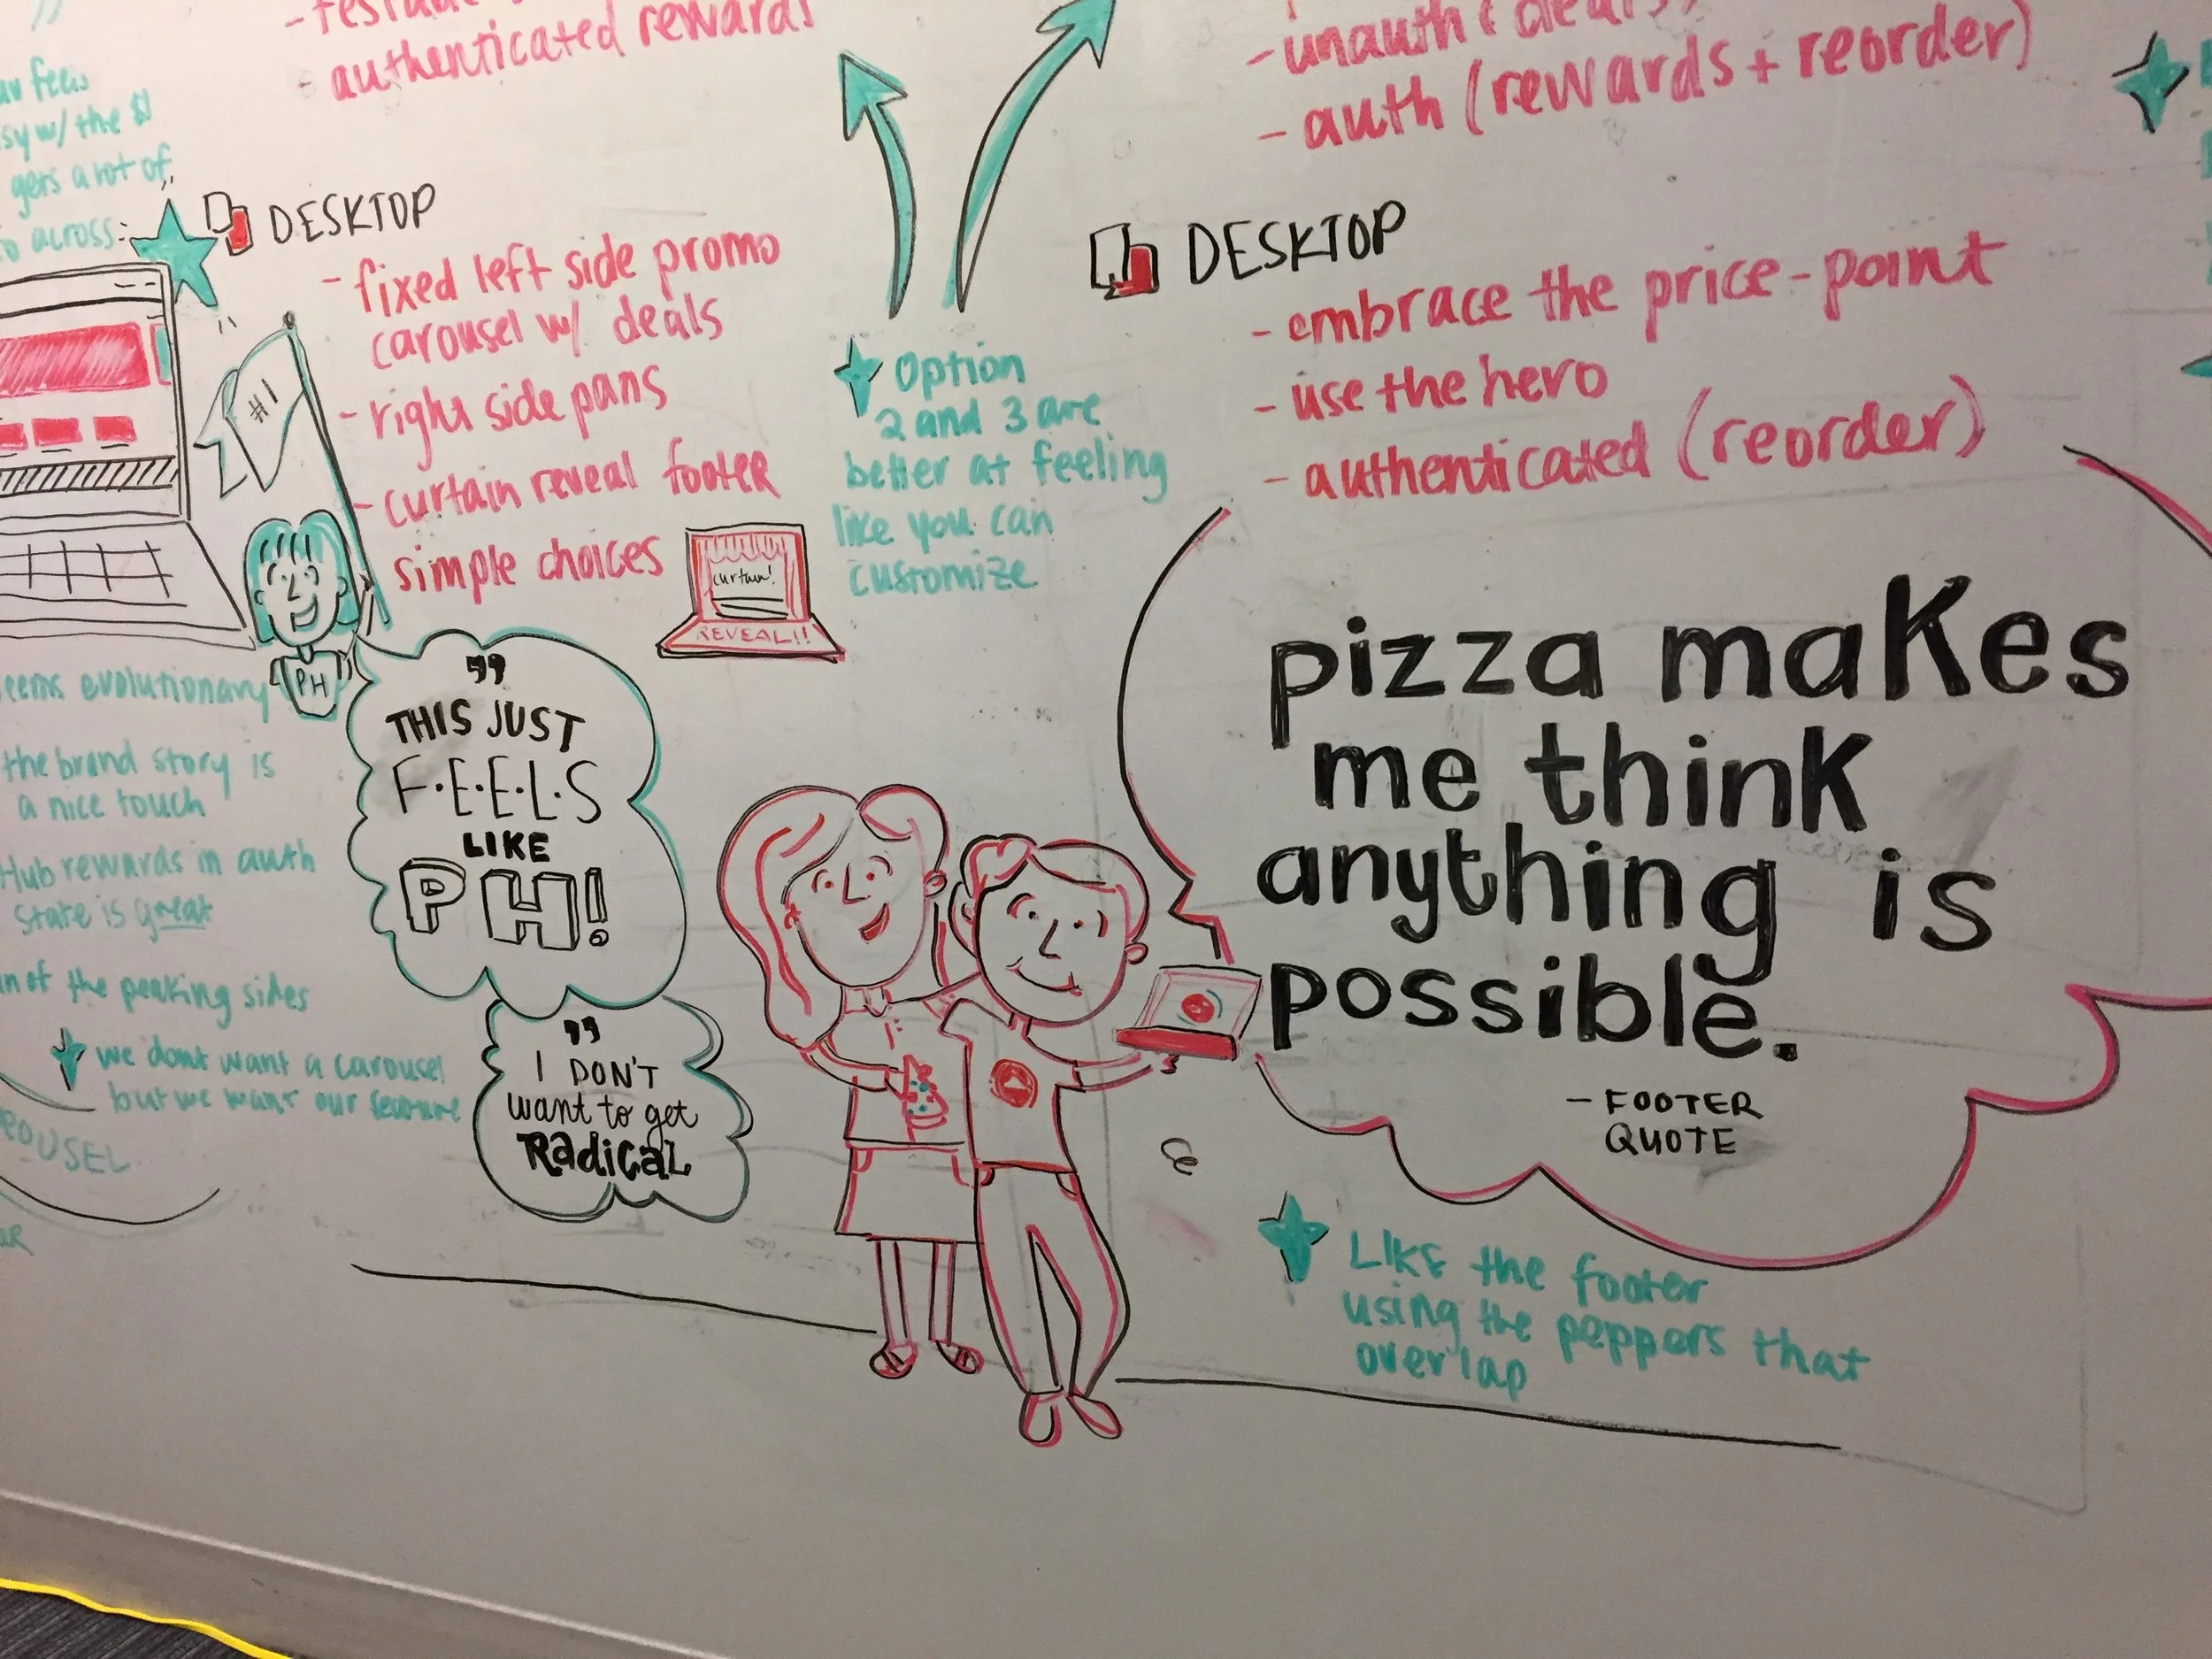 authenticated rewards
feels
w/ the $1
gets a lot of
across:
DESKTOP
- fixed left side promo
carousel w/ deals
- right side pans
- curtain reveal footer
simple choices
#1
PH
curtain!
REVEAL!!
evolutionary
the brand story is
a nice touch
Hub rewards in auth
state is great
of the peaking sides
we dont want a carousel
but we want our feature
"
THIS JUST
F·E·E·L·S
LIKE
PH!
"
I DON'T
want to get
RadicaL
Option
2 and 3 are
better at feeling
like you can
customize
- unauth (deals)
- auth (rewards + reorder)
DESKTOP
- embrace the price-point
- use the hero
- authenticated (reorder)
pizza makes
me think
anything is
possible.
- FOOTER
QUOTE
LIKE the footer
using the peppers that
overlap